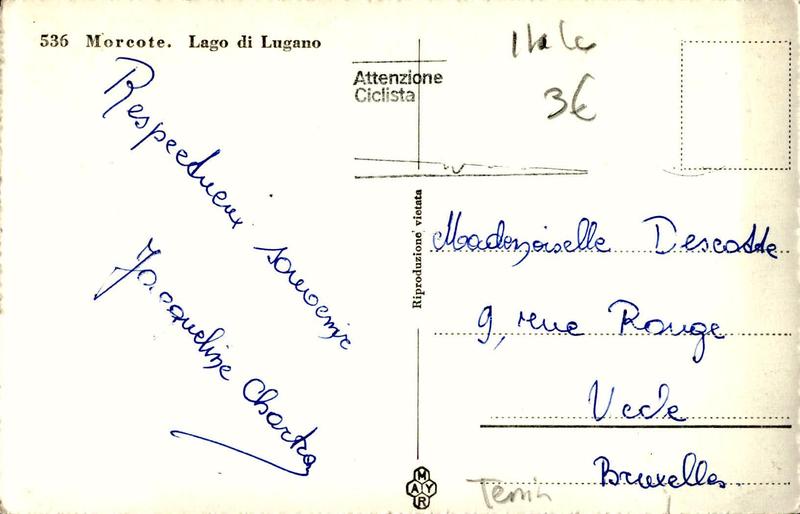 536 Morcote. Lago di Lugano
Respectueux
souvenir
Jacqueline
Attenzione
Ciclista
3€
Riproduzione vietata
Mademoiselle Descotte
9, rue Rouge
Uccle
Bruxelles.
MAYR